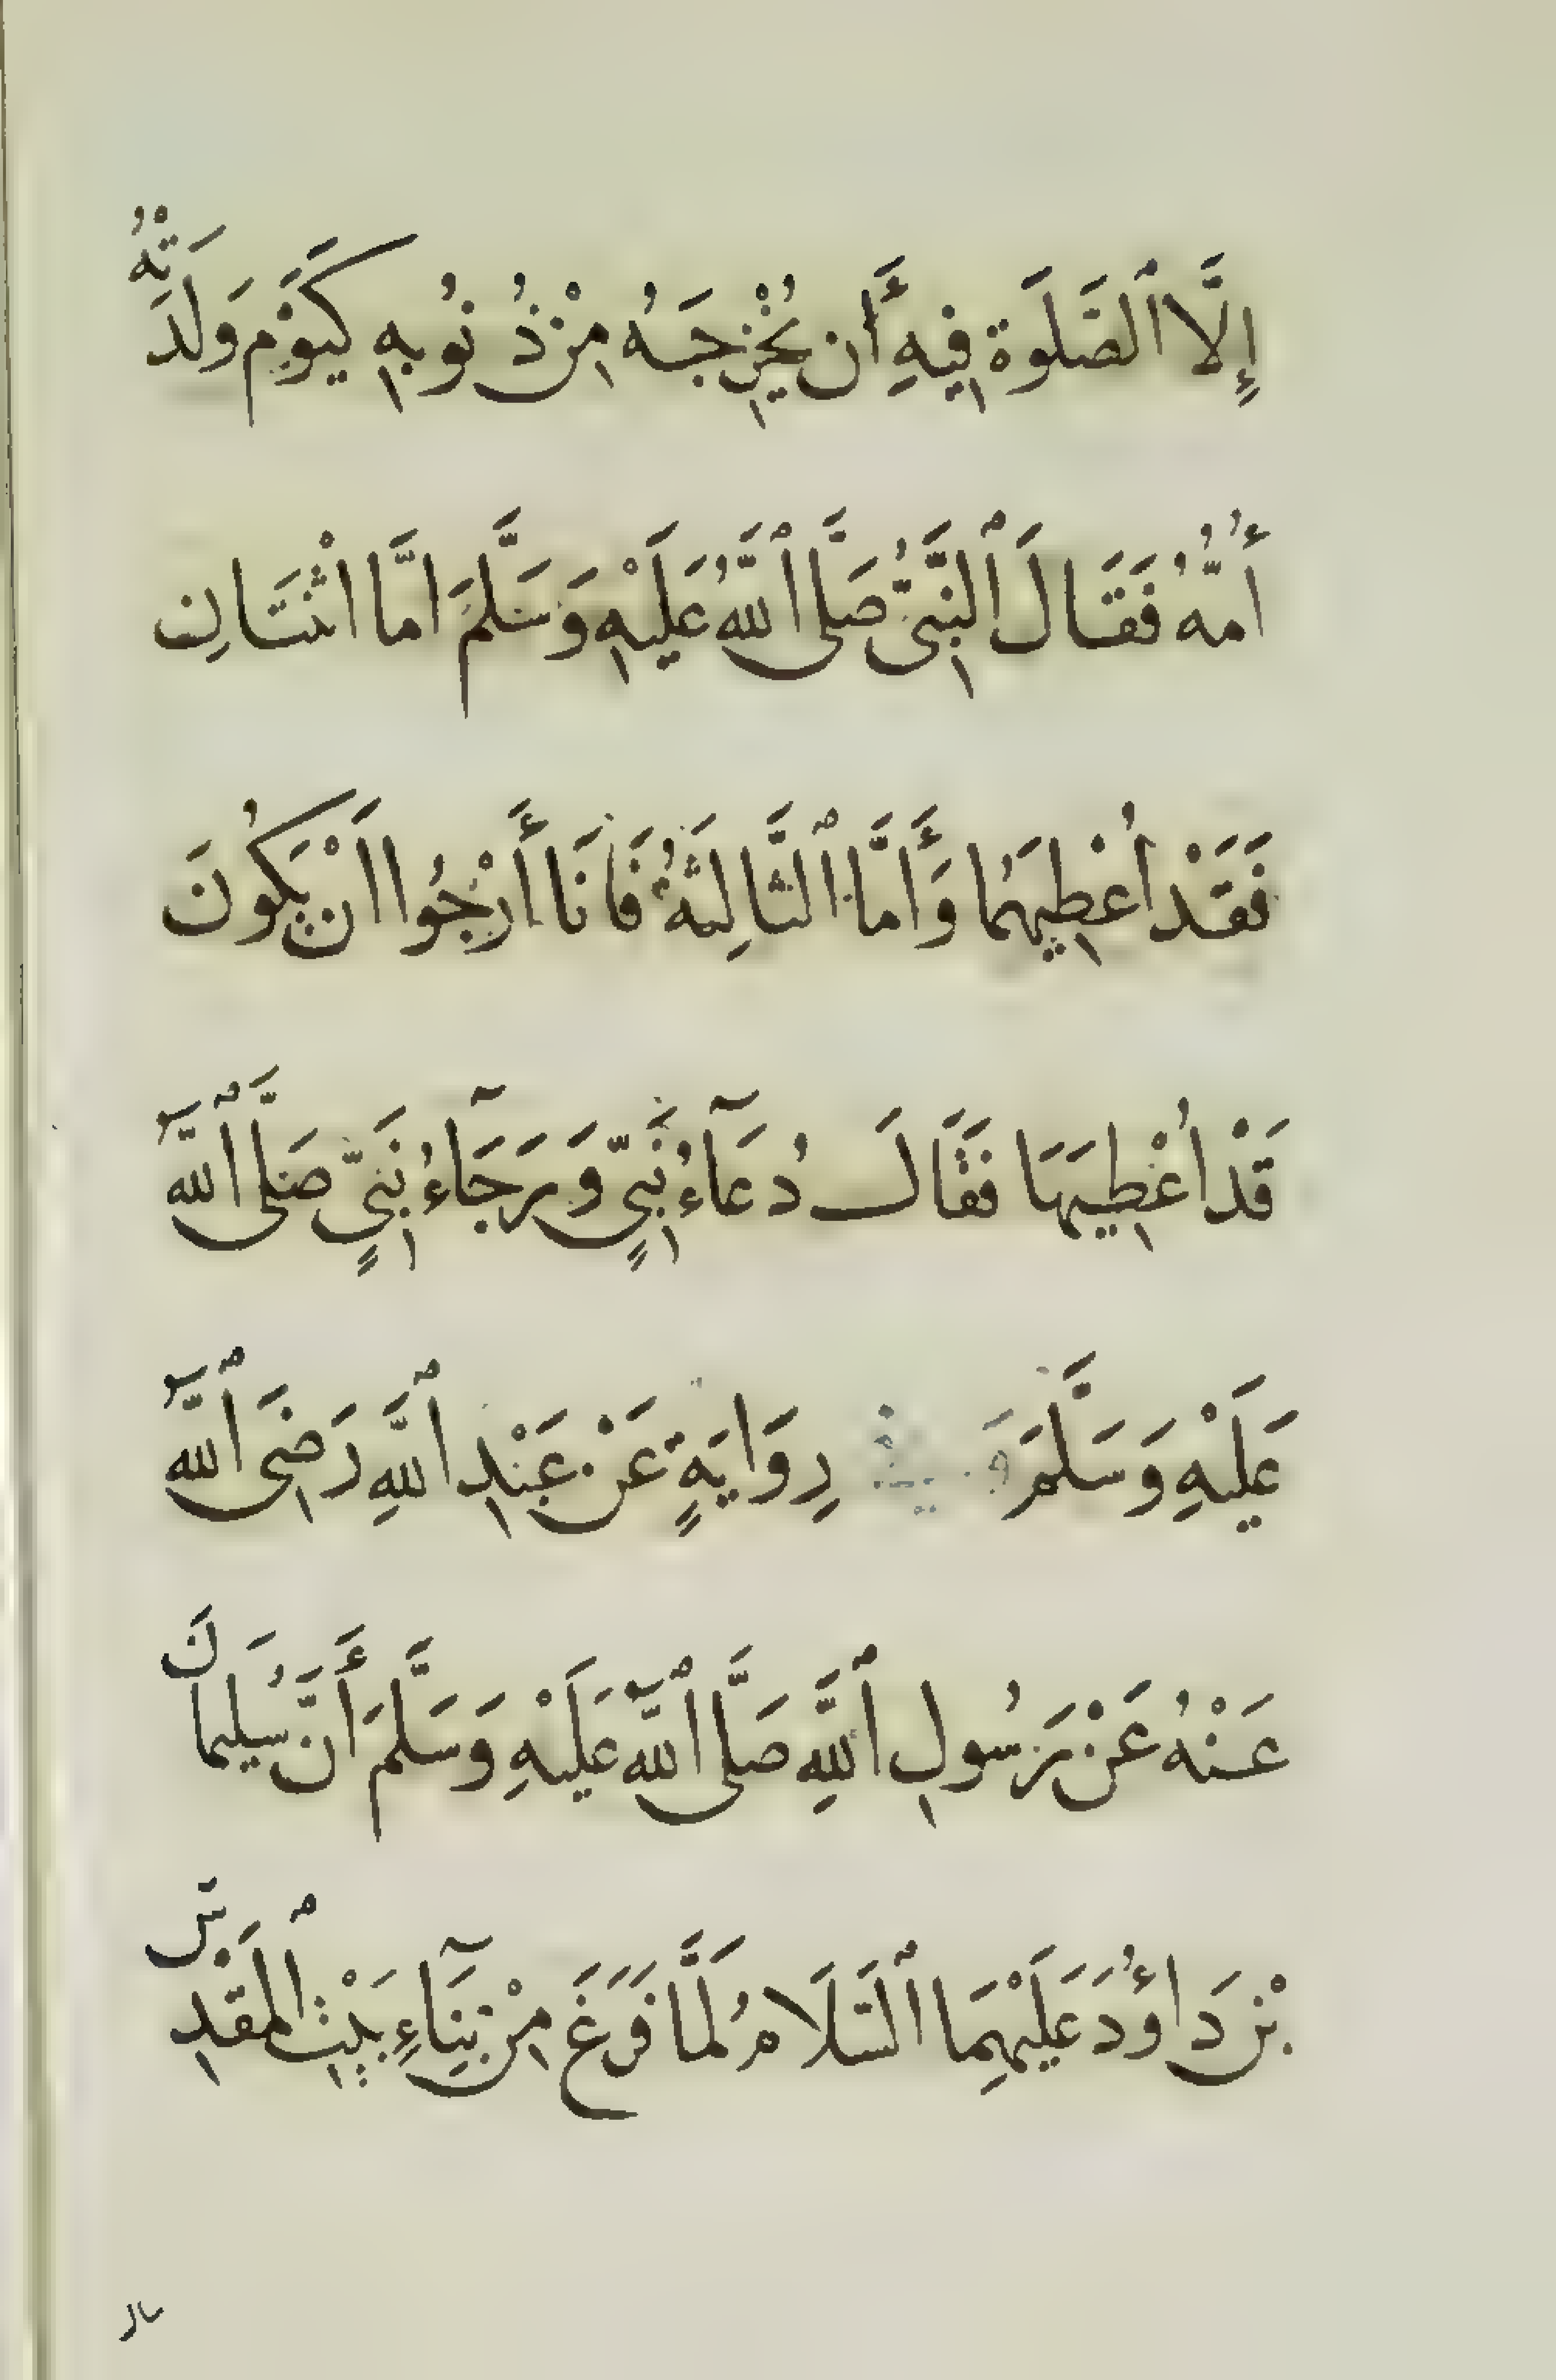 إِلَّا ٱلصَّلَوة فِيهِ أَن يُخْرِجَهُ مِنْ ذُنُوبِهِ كَيَوْمِ وَلَدَتْهُ
أُمُّهُ فَقَالَ ٱلنَّبِىُّ صَلَّى ٱللَّهُ عَلَيْهِ وَسَلَّمَ امَّا اثْنَتَانِ
فَقَدْ اُعْطِيَهُمَا وَأَمَّا ٱلثَّالِثَةُ فَانَا أَرْجُوا اَنْ يَكُونَ
قَدْ اُعْطِيَهَا فَقَالَ دُعَآءُ نَبِىٍّ وَرَجَآءُ نَبِىٍّ صَلَّى ٱللَّهُ
عَلَيْهِ وَسَلَّمَ وَ فِى رِوَايَةٍ عَنْ عَبْدِ ٱللَّهِ رَضِىَ ٱللَّهُ
عَنْهُ عَنْ رَسُولِ ٱللَّهِ صَلَّى ٱللَّهُ عَلَيْهِ وَسَلَّمَ أَنَّ سُلَيمَانَ
بْنَ دَاؤُدَ عَلَيْهِمَا ٱلسَّلَامُ لَمَّا فَرَغَ مِنْ بِنَآءِ بَيْتِ ٱلمَقْدِسِ